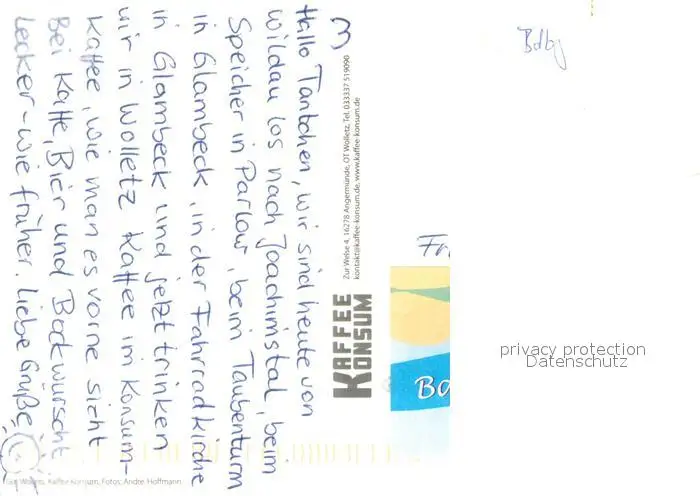 Hallo Tantchen, wir sind heute von
Wildau los nach Joachimstal, beim
Speicher in Parlow, beim Taubenturm
in Glambeck, in der Fahrradkirche
in Glambeck und jetzt trinken
wir in Wolletz Kaffee im Konsum-
Kaffee, wie man es vorne sieht
Bei Kaffe, Bier und Bockwurscht
Lecker - wie früher. Liebe Grüße
Zur Welse 4, 16278 Angermünde, OT Wolletz, Tel. 033337 519090
kontakt@kaffee-konsum.de, www.kaffee-konsum.de
KAFFEE
KONSUM
Gut Wolletz, Kaffee Konsum, Fotos: Andre Hoffmann
Bdbg
Bo
privacy protection
Datenschutz